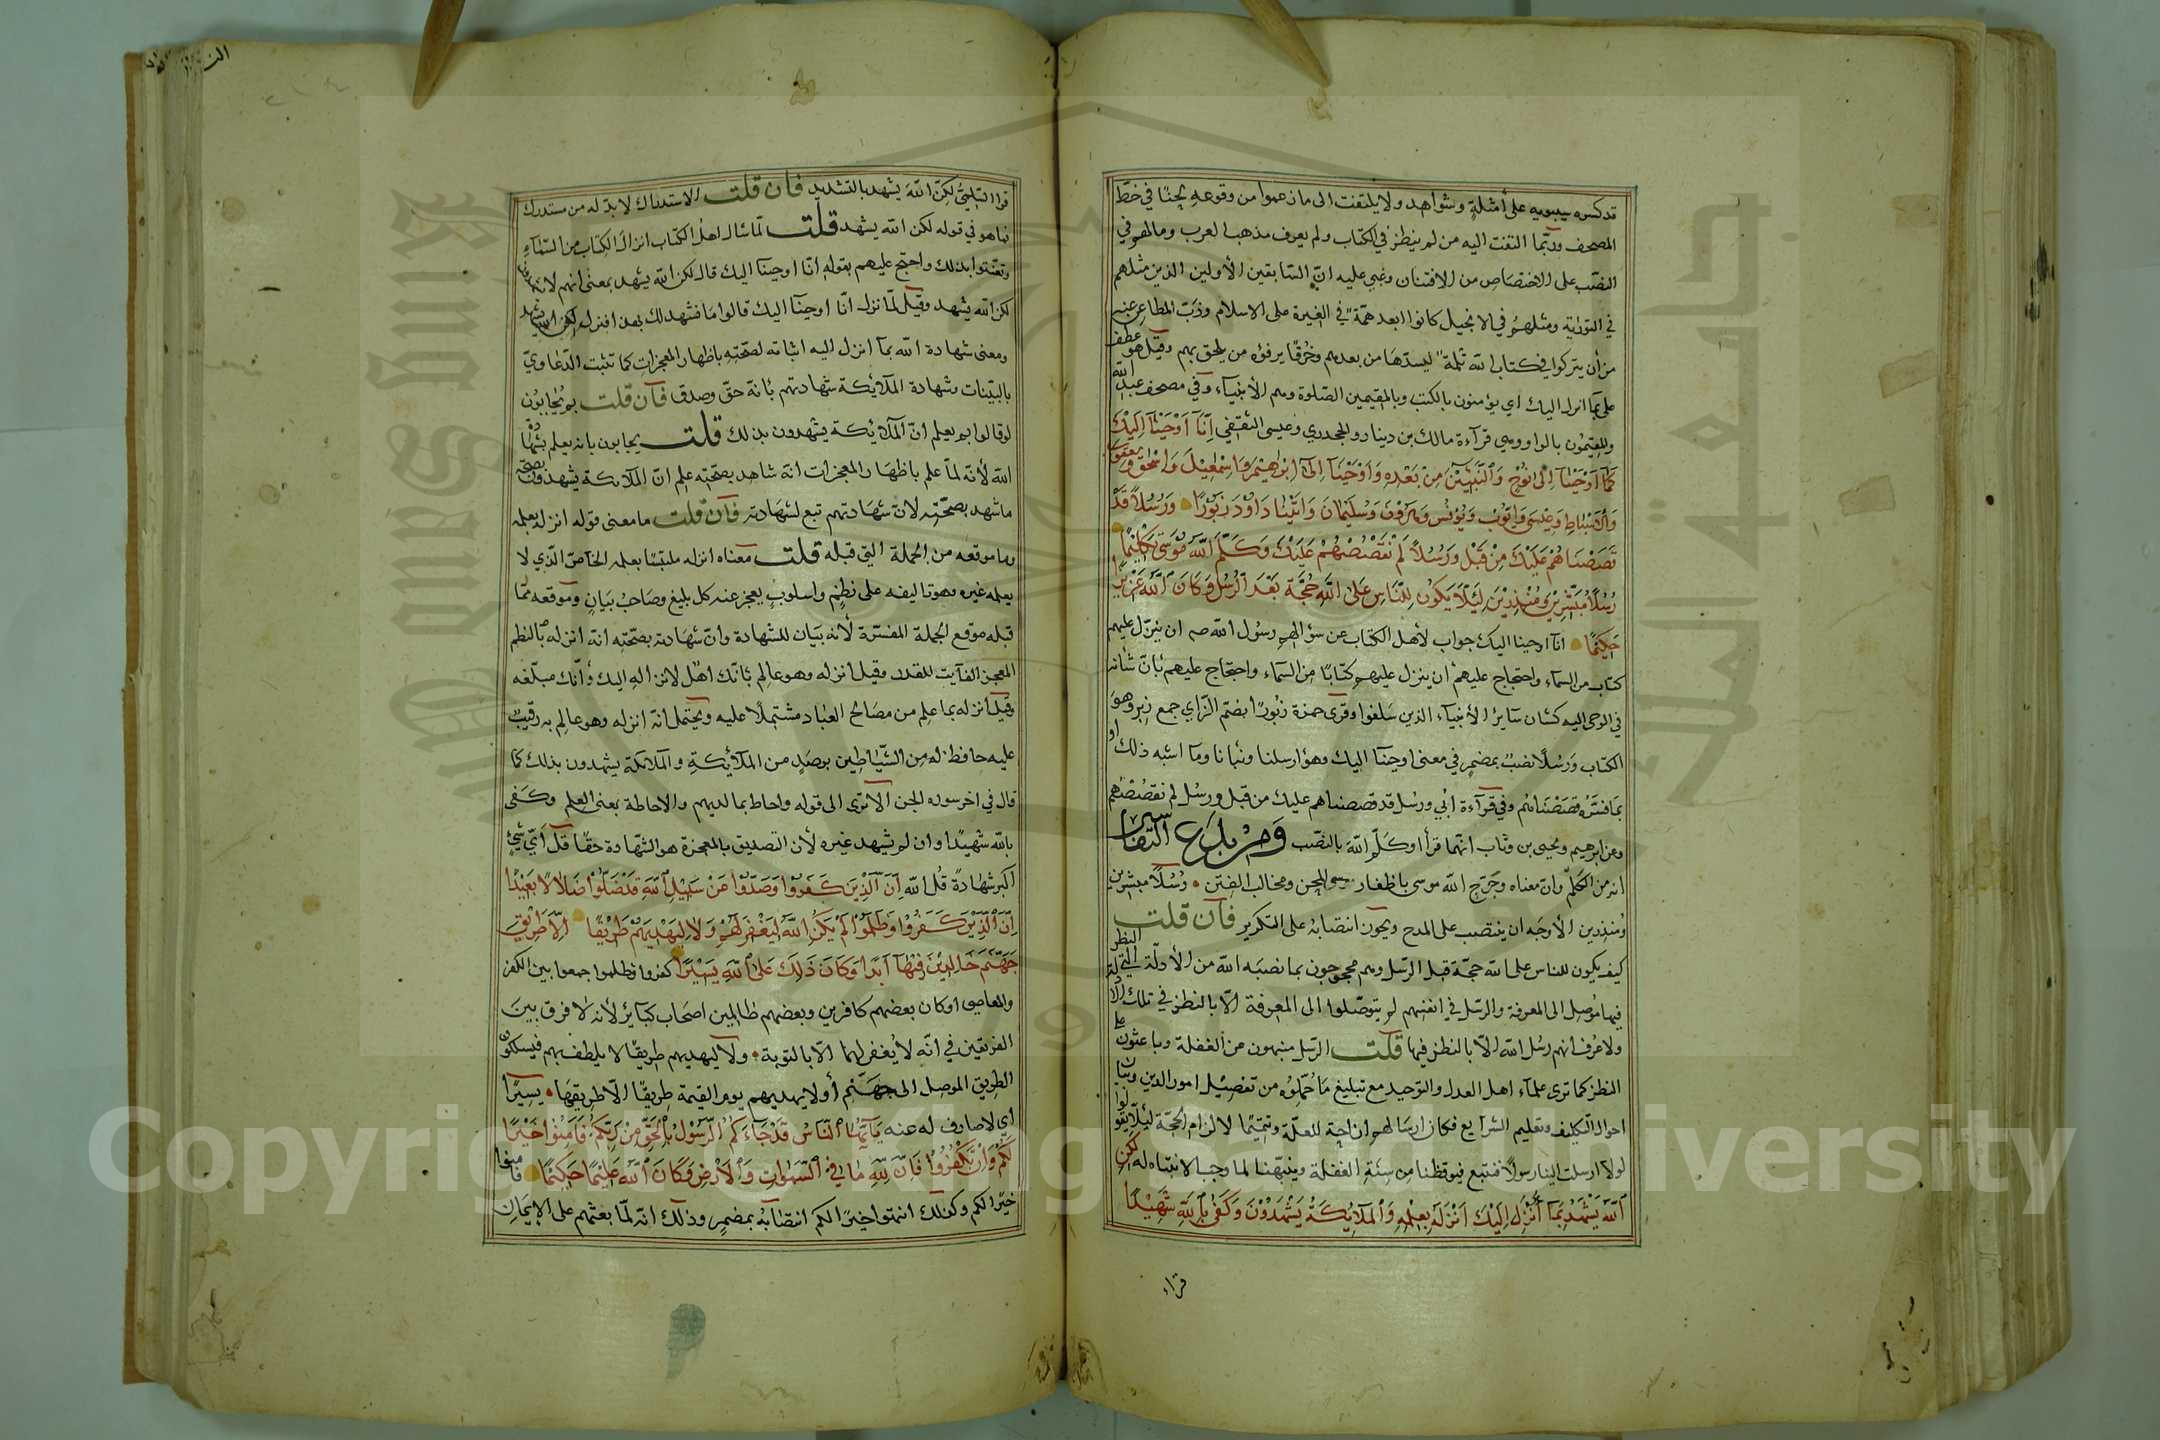 قد كسره سيبويه على أمثلةٍ وشواهد ولا يلتفت الى ما زعموا من وقوعه لحنًا في خطّ
المصحف وربّما التفت اليه من لم ينظر في الكتاب ولم يعرف مذهب العرب وما لهم في
النصب على الاختصاص من الافتنان وغبي عليه انّ السّابقين الأولين الذين مثلهم
في التورٰية ومثلهم في الانجيل كانوا ابعد همّة في الغيرة على الاسلام وذبّ المطاعن عنه
من أن يتركوا في كتاب الله ثلمة ليسدّها من بعدهم وخرقًا يرفؤه من يلحق بهم وقيل هو عطف
على بما انزل اليك أي يؤمنون بالكتب وبالمقيمين الصلوة وهم الأنبيآء وفي مصحف عبد الله
والمقيمون بالواو وهي قرآءة مالك بن دينار والجحدري وعيسى الثقفي إنّآ أوحينآ إليك
كمآ أوحينآ إلى نوح والنّبيّين من بعده وأوحينآ إلى إبرٰهيم وإسمٰعيل وإسحٰق ويعقوب
والأسباط وعيسى وأيّوب ويونس وهرون وسليمان وآتينا داود زبورًا ورسلًا قد
قصصناهم عليك من قبل ورسلًا لم نقصصهم عليك وكلّم الله موسى تكليمًا
رسلًا مبشّرين ومنذرين لئلّا يكون للنّاس على الله حجّة بعد الرّسل وكان الله عزيزًا
حكيمًا انّآ اوحينا اليك جواب لأهل الكتاب عن سؤالهم رسول الله صم ان ينزّل عليهم
كتاب من السمآء واحتجاج عليهم أن ينزل عليهم كتابًا من السمآء واحتجاج عليهم بأنّ شأنه
في الوحي اليه كشان سآئر الأنبيآء الذين سلفوا وقرئ حمزة زبورًا بضمّ الزّاي جمع زبر وهو
الكتاب ورسلًا نصب بمضمر في معنى اوحينآ اليك وهو ارسلنا ونبّانا ومآ اشبه ذلك او
بما فسّره قصصناهم وفي قرآءة ابي ورسل قد قصصناهم عليك من قبل ورسل لم نقصصهم
وعن ابرهيم ويحيى بن وثّاب انّهما قرأا وكلّم الله بالنّصب ومن بدع التّفاسير
انه من الكلم وانّ معناه وجرّح الله موسى باظفار المحن ومخالب الفتن رسلًا مبشرين
ومنذرين الأوجه ان ينتصب على المدح ويجوز انتصابه على التكرير فآن قلت
كيف يكون للناس على الله حجّة قبل الرّسل وهم محجوجون بما نصبه الله من الأدلّة التي النظر
فيها موصل الى المعرفة والرّسل في انفسهم لم يتوصّلوا الى المعرفة الّا بالنظر في تلك الادلة
ولا عرف انهم رسل الله الّا بالنظر فيها قلت الرّسل منبهون من الغفلة وباعثون على
النظر كما ترى علمآء اهل العدل والتوحيد مع تبليغ ما حمّلوه من تفصيل امور الدين وبيان
احوال التّكليف وتعليم الشرآيع فكان ارسالهم ازاحة للعلّة وتتميمًا لالزام الحجّة لئلّا يقولوا
لولا ارسلت الينا رسولًا فنتبع فيوقظنا من سنة الغفلة وينبّهنا لما وجب الانتباه له لكن
الله يشهد بمآ أنزل إليك أنزله بعلمه والملآئكة يشهدون وكفى بالله شهيدًا
قراء
قرا السّلميّ لكنّ الله يشهد بالتشديد فان قلت الاستدراك لا بدّ له من مستدرك
فما هو في قوله لكن الله يشهد قلت لمّا سال اهل الكتاب انزال الكتاب من السّمآء
وتعنّتوا بذلك واحتج عليهم بقوله انّا اوحينآ اليك قال لكن الله يشهد بمعنى انهم لا يشهدون
لكن الله يشهد وقيل لمّا نزل انّا اوحينآ اليك قالوا ما نشهد لك بهذا فنزل لكن الله يشهد
ومعنى شهادة الله بمآ انزل اليه اثباته لصحّته باظهار المعجزات كما تثبت الدّعاوي
بالبيّنات وشهادة الملآئكة شهادتهم بأنّه حقّ وصدق فآن قلت بم يجابون
لو قالوا بم يعلم انّ الملآئكة يشهدون بذلك قلت يجابون بانه يعلم بشهادة
الله لأنّه لمّا علم باظهار المعجزات انّه شاهد بصحّته علم انّ الملآئكة يشهدون بصحّة
ما شهد بصحّته لانّ شهادتهم تبع لشهادته فآن قلت ما معنى قوله انزله بعلمه
وما موقعه من الجملة التي قبله قلت معناه انزله ملتبسًا بعلمه الخاصّ الّذي لا
يعلمه غيره وهو تاليفه على نظم واسلوب يعجز عنه كل بليغ وصاحب بيان وموقعه ممّا
قبله موقع الجملة المفسّرة لأنه بيان للشهادة وانّ شهادته بصحّته انّه انزله بالنظم
المعجز الفآيت للقدر وقيل انزله وهو عالم بأنّك اهل لانزاله اليك وأنّك مبلّغه
وقيل انزله بما علم من مصالح العباد مشتملًا عليه ويحتمل انّه انزله وهو عالم به رقيب
عليه حافظ له من الشّياطين برصد من الملآئكة والملآئكة يشهدون بذلك كما
قال في اخر سوره الجن الا ترى الى قوله واحاط بما لديهم والاحاطة بمعنى العلم وكفى
بالله شهيدًا وان لم يشهد غيره لأن التصديق بالمعجزة هو الشّهادة حقًا قل أيّ شيءٍ
اكبر شهادةً قل الله إنّ الّذين كفروا وصدّوا عن سبيل الله قد ضلّوا ضلالًا بعيدًا
إنّ الّذين كفروا وظلموا لم يكن الله ليغفر لهم ولا ليهديهم طريقًا إلّا طريق
جهنّم خالدين فيهآ أبدًا وكان ذلك على الله يسيرًا كفروا وظلموا جمعوا بين الكفر
والمعاصي او كان بعضهم كافرين وبعضهم ظالمين اصحاب كبآئر لأنه لا فرق بين
الفريقين في انّه لا يغفر لهما الّا بالتوبة ولا ليهديهم طريقًا لا يلطف بهم فيسلكون
الطريق الموصل الى جهنّم أو لا يهديهم يوم القيمة طريقًا الّا طريقها يسيرًا
اي لا صارف له عنه يآ أيّها النّاس قد جآءكم الرّسول بالحقّ من ربّكم فآمنوا خيرًا
لّكم وإن تكفروا فإنّ لله ما في السّموات والأرض وكان الله عليمًا حكيمًا فآمنوا
خيرًا لكم وكذلك انتهوا خيرًا لكم انتصابه بمضمر وذلك انّه لمّا بعثهم على الإيمان
Copyright © King Saud University
جامعة الملك سعود